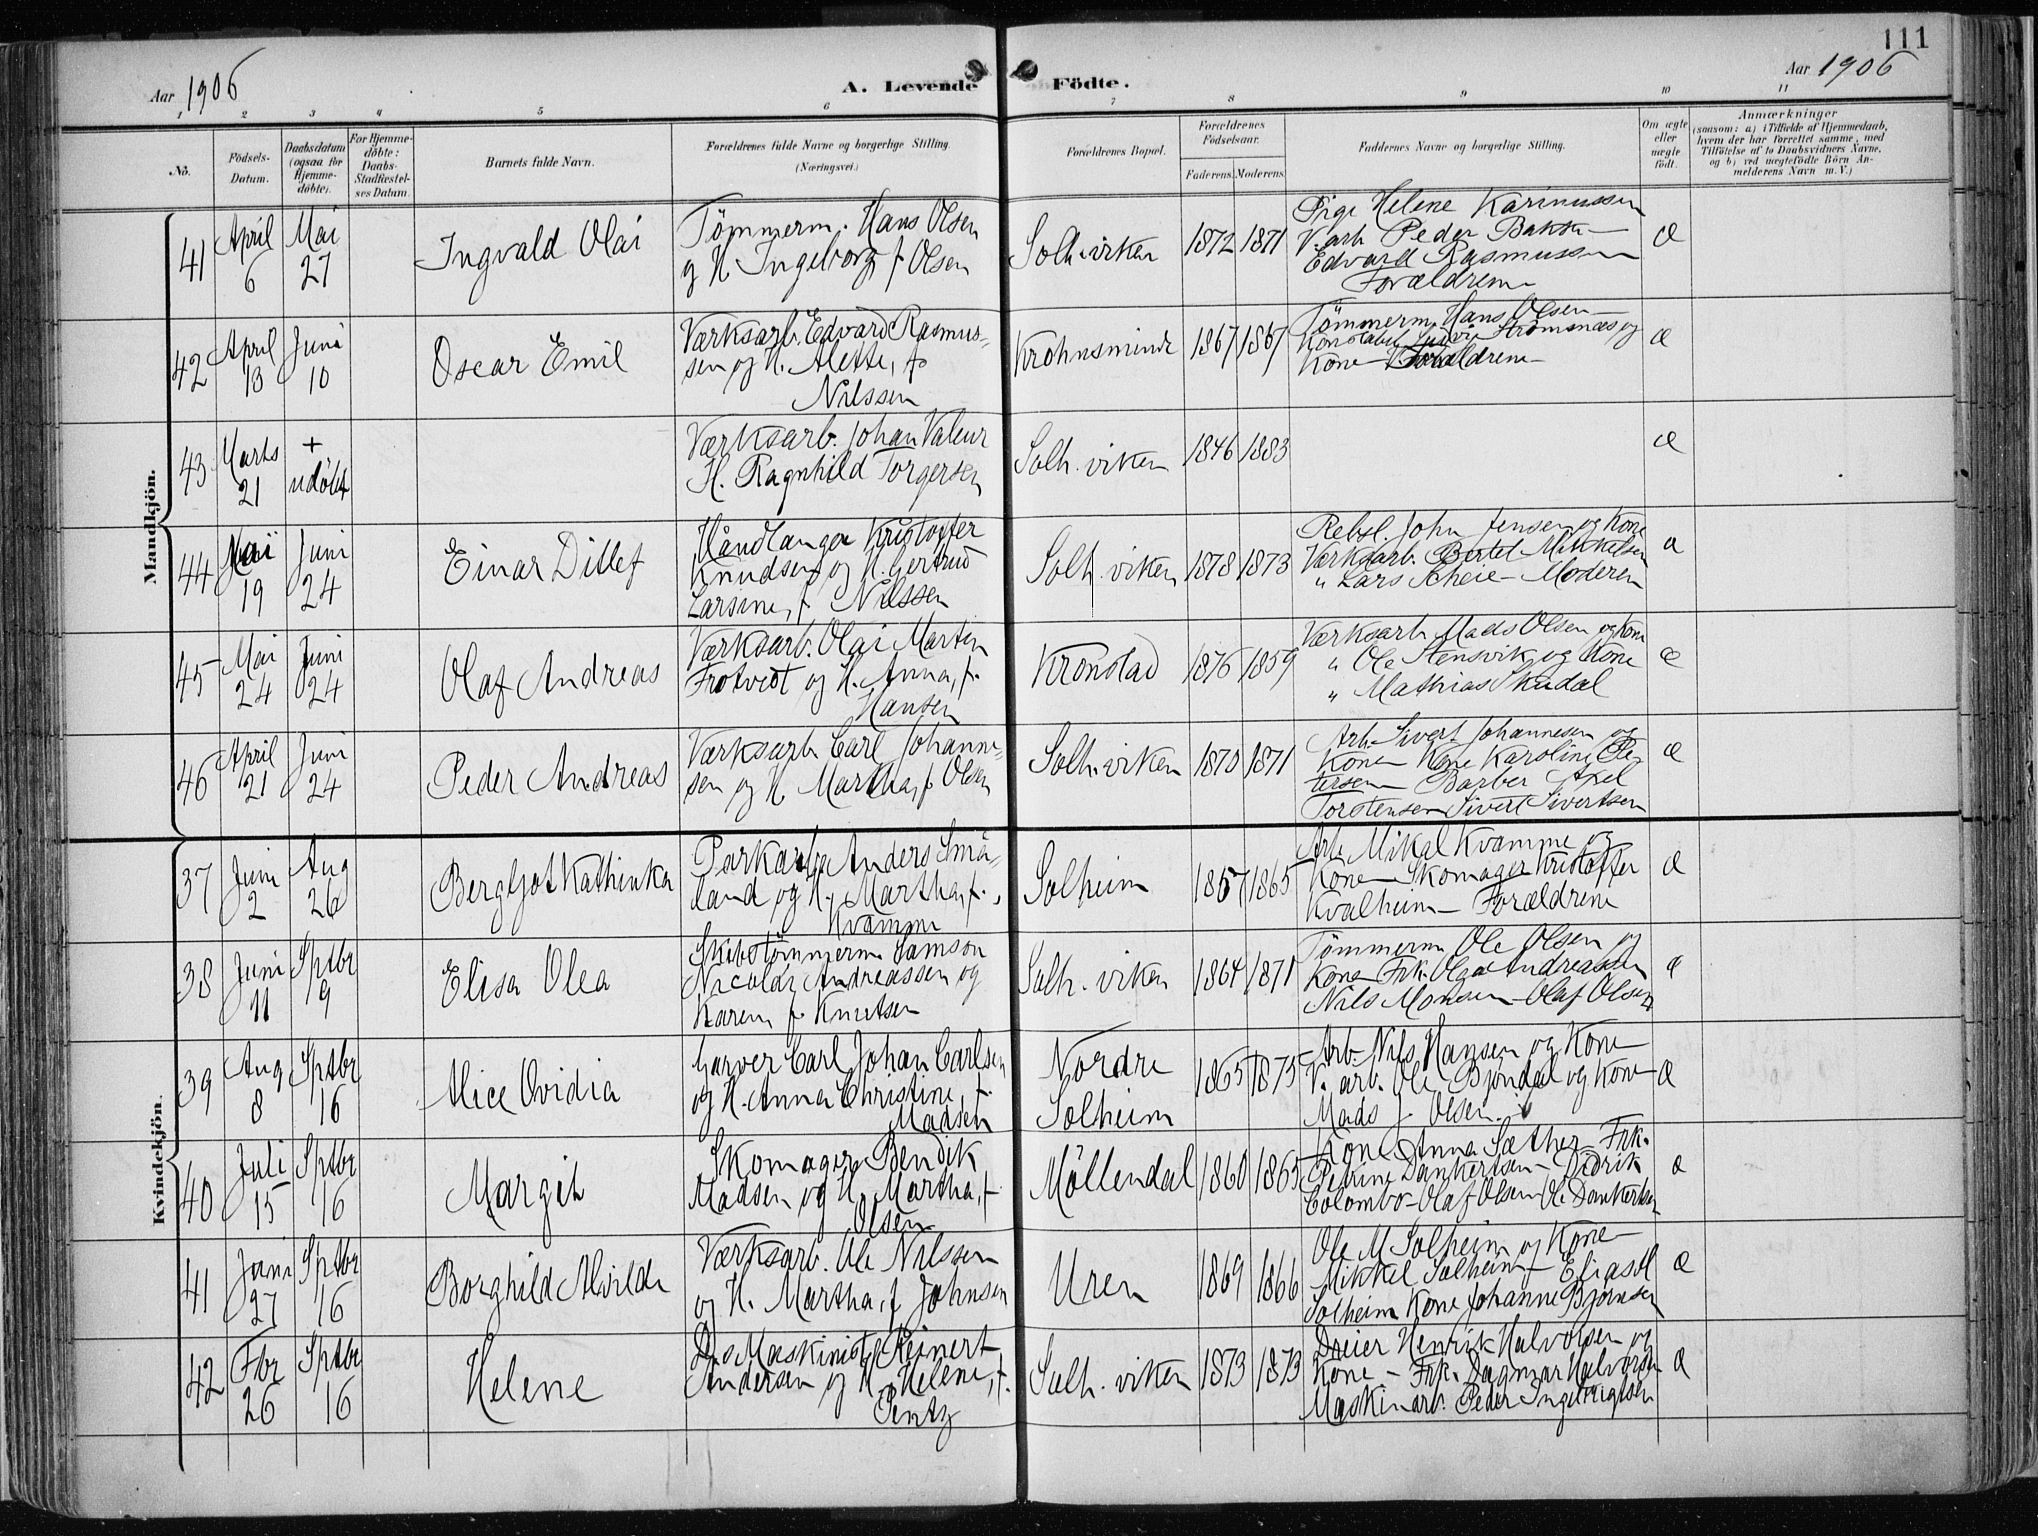 111
Aar 1906
A. Levende Födte.
Aar 1906
1 2 3 4 5 6 7 8 9 10 11
No.
Födsels-
Datum.
Daabsdatum
(ogsaa for
Hjemme-
döbte).
For Hjemme-
döbte:
Daabs-
Stadfæstel-
ses Datum.
Barnets fulde Navn.
Forældrenes fulde Navne og borgerlige Stilling.
(Næringsvei.)
Forældrenes Bopæl.
Forældrenes
Födselsaar.
Faderens. Moderens.
Faddernes Navne og borgerlige Stilling.
Om ægte
eller
uægte
födt.
Anmærkninger
(saasom: a) i Tilfælde af Hjemmedaab,
hvem der har forrettet samme, med
Tilföielse af to Daabsvidners Navne,
og b) ved uægtefödte Börn An-
melderens Navn m. V.)
Mandkjön.
41
April
6
Mai
27
Ingvald Olai
Tömmerm. Hans Olsen
og H. Ingeborg f. Olsen
Solh.viken
1872 1871
Pige Helene Karinussen
V.arb. Peder Bakke
Edvard Rasmussen
Forældrene
Æ
42
April
13
Juni
10
Oscar Emil
Værksarb. Edvard Rasmus-
sen og H. Alette, f.
Nilssen
Krohnsminde
1867 1867
Tömmerm. Hans Olsen
Konstabel Strömsnæs og
Kone Forældrene
Æ
43
Marts
21
+
udöbt
Værksarb. Johan Valeur
H. Ragnhild Torgersen
Solh.viken
1846 1883
Æ
44
Mai
19
Juni
24
Einar Ditlef
Håndlanger Kristoffer
Knudsen og H. Gertrud
Larsine, f. Nilssen
Solh.viken
1878 1873
Rebsl. John Jensen og Kone
Værksarb. Bertel Mikkelsen
" Lars Scheie - Moderen
Æ
45
Mai
24
Juni
24
Olaf Andreas
Værksarb. Olai Martin
Frotvedt og H. Anna, f.
Hansen
Kronstad
1876 1859
Værksarb. Mads Olsen og Kone
" Ole Stensvik og Kone
" Mathias Skudal
Æ
46
April
21
Juni
24
Peder Andreas
Værksarb. Carl Johanne-
sen og H. Martha, f. Olsen
Solh.viken
1870 1871
Arb. Sivert Johannesen og
Kone Kone Karoline Pe-
tersen Barber Axel
Torstensen Sivert Sivertsen
Æ
Kvindekjön.
37
Juni
2
Aug
26
Bergljot Kathinka
Parkarb. Anders Små-
land og H. Martha, f.
Kvamme
Solheim
1867 1865
Arb. Mikal Kvamme og
Kone - Skomager Kristoffer
Kvalheim - Forældrene
Æ
38
Juni
11
Sptbr
9
Elisa Olea
Skibstömmerm. Samson
Nicolai Andreassen og
Karen f. Knutsen
Solh.viken
1864 1871
Tömmerm. Ole Olsen og
Kone Frk. Olga Andreassen
Nils Monsen - Olaf Olsen
Æ
39
Aug
8
Sptbr
16
Alice Ovidia
Garver Carl Johan Carlsen
og H. Anna Christine, f.
Madsen
Nordre
Solheim
1865 1875
Arb. Nils Hansen og Kone
V. arb. Ole Bjöndal og Kone
Mads J. Olsen
Æ
40
Juli
15
Sptbr
16
Margit
Skomager Bendik
Madsen og H. Martha, f.
Olsen
Möllendal
1860 1865
Kone Anna Sæther Frk.
Petrine Dankertsen - Didrik
Colombo - Olaf Olsen Ole Dankertsen
Æ
41
Juni
27
Sptbr
16
Borghild Alvilde
Værksarb. Ole Nilssen
og H. Martha, f. Johnsen
Uren
1869 1866
Ole M Solheim og Kone
Mikkel Solheim
Solheim Kone Johanne Bjørnsen
Æ
42
Fbr
26
Sptbr
16
Helene
Ds Maskinist Reinert
Andersen og H. Helene, f.
Pentz
Solh.viken
1873 1873
Dreier Henrik Halvorsen og
Kone - Frk. Dagmar Halvorsen
Maskinarb. Peder Ingebrigtsen
Æ